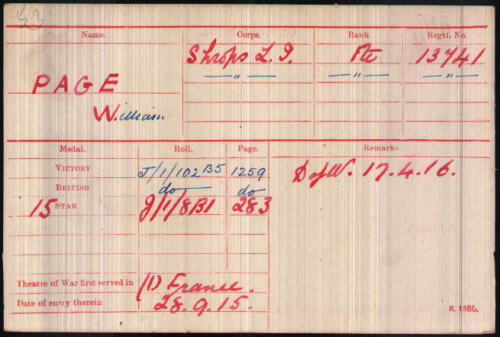 Name. Corps. Rank Regtl. No.
Shrops L.I. Pte 13741
PAGE —„— —„— —„—
William
Medal. Roll. Page. Remarks
VICTORY J/1/102 B5 1259 D of W. 17.4.16.
BRITISH do do
15 STAR J/1/8B1 283
Theatre of War first served in (1) France.
Date of entry therein 28.9.15.
K. 1380.